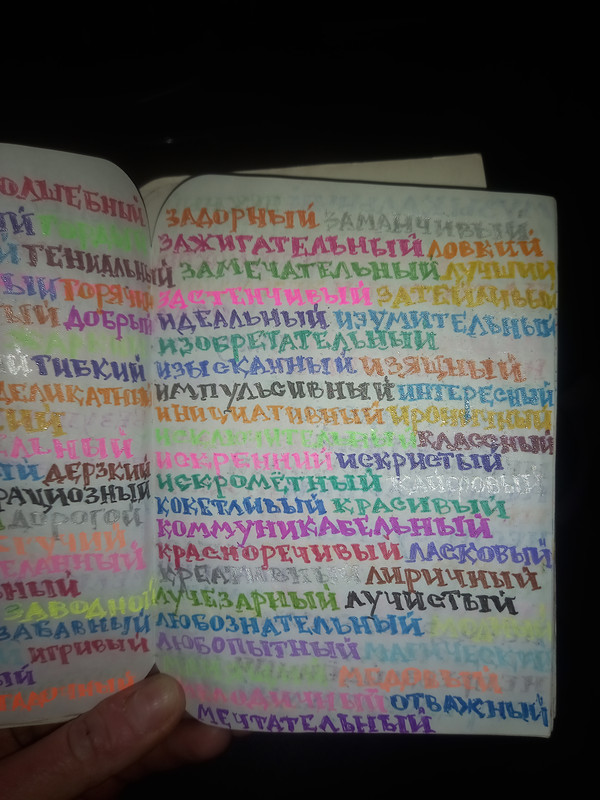 ОЛШЕБНЫЙ
ГЕНИАЛЬНЫЙ
ЫЙ ГОРЯЧИЙ
ДОБРЫЙ
ГИБКИЙ
ДЕЛИКАТНЫЙ
ЕЛЬНЫЙ
ДЕРЗКИЙ
РАЦИОЗНЫЙ
ДОРОГОЙ
ЕЛАННЫЙ
ЗАВОДНОЙ
ЗАБАВНЫЙ
ИГРИВЫЙ
ЗАДОРНЫЙ ЗАМАНЧИВЫЙ
ЗАЖИГАТЕЛЬНЫЙ ЛОВКИЙ
ЗАМЕЧАТЕЛЬНЫЙ ЛУЧШИЙ
ЗАСТЕНЧИВЫЙ ЗАТЕЙЛИВЫЙ
ИДЕАЛЬНЫЙ ИЗУМИТЕЛЬНЫЙ
ИЗОБРЕТАТЕЛЬНЫЙ
ИЗЫСКАННЫЙ ИЗЯЩНЫЙ
ИМПУЛЬСИВНЫЙ ИНТЕРЕСНЫЙ
ИНИЦИАТИВНЫЙ ИРОНИЧНЫЙ
ИСКЛЮЧИТЕЛЬНЫЙ КЛАССНЫЙ
ИСКРЕННИЙ ИСКРИСТЫЙ
ИСКРОМЁТНЫЙ
КОКЕТЛИВЫЙ КРАСИВЫЙ
КОММУНИКАБЕЛЬНЫЙ
КРАСНОРЕЧИВЫЙ ЛАСКОВЫЙ
КРЕАТИВНЫЙ ЛИРИЧНЫЙ
ЛУЧЕЗАРНЫЙ ЛУЧИСТЫЙ
ЛЮБОЗНАТЕЛЬНЫЙ
ЛЮБОПЫТНЫЙ МАГИЧЕСКИЙ
МЕДОВЫЙ
ОТВАЖНЫЙ
МЕЧТАТЕЛЬНЫЙ